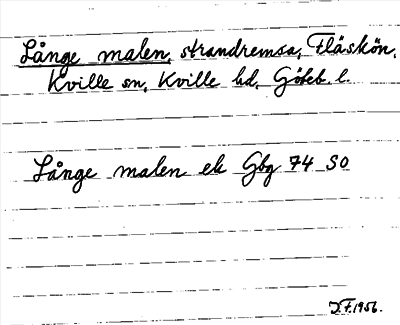 Långe malen, strandremsa, Fläskön,
Kville sn, Kville hd, Göteb. l.
Långe malen ek Gbg 74 SO
D.F. 1956.